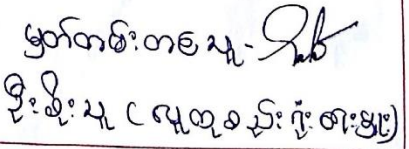 မှတ်တမ်းတင်သူ -
ဦးစိုးသူ (လူထုစည်းရုံးရေးမှူး)